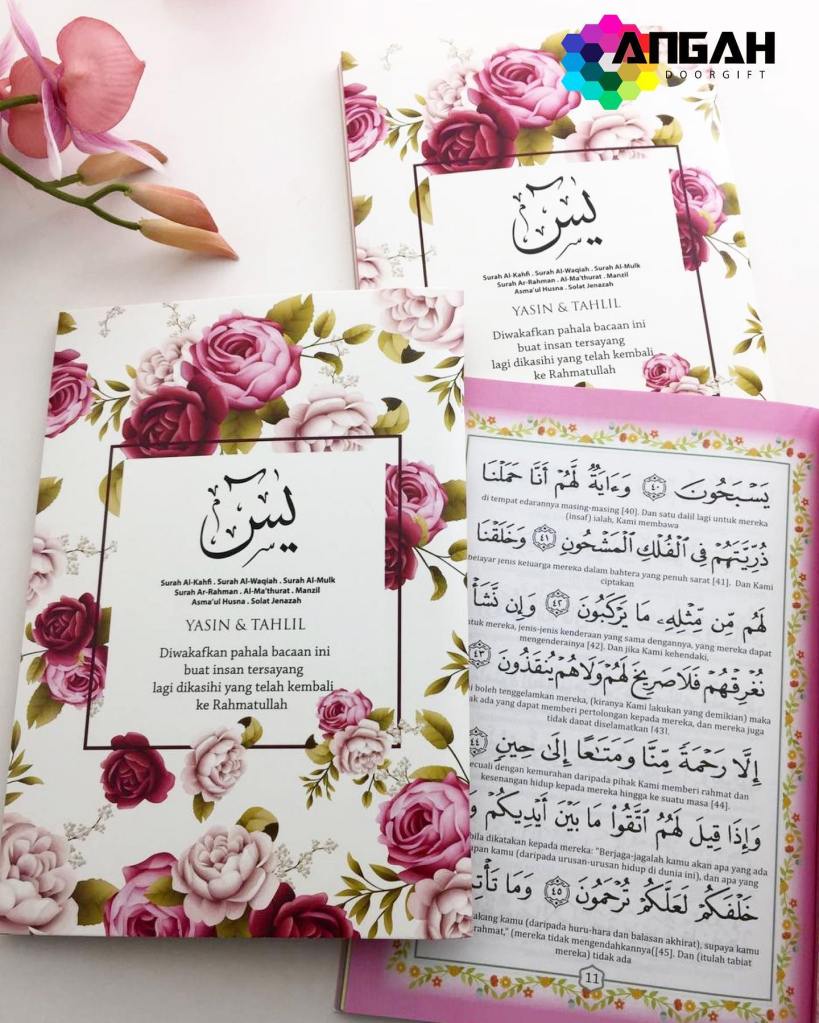 ANGAH
DOORGIFT
يس
Surah Al-Kahfi . Surah Al-Waqiah . Surah Al-Mulk
Surah Ar-Rahman . Al-Ma'thurat . Manzil
Asma'ul Husna . Solat Jenazah
YASIN & TAHLIL
Diwakafkan pahala bacaan ini
buat insan tersayang
lagi dikasihi yang telah kembali
ke Rahmatullah
يس
Surah Al-Kahfi . Surah Al-Waqiah . Surah Al-Mulk
Surah Ar-Rahman . Al-Ma'thurat . Manzil
Asma'ul Husna . Solat Jenazah
YASIN & TAHLIL
Diwakafkan pahala bacaan ini
buat insan tersayang
lagi dikasihi yang telah kembali
ke Rahmatullah
يَسْبَحُونَ ٤٠ وَءَايَةٌ لَّهُمْ أَنَّا حَمَلْنَا
di tempat edarannya masing-masing [40]. Dan satu dalil lagi untuk mereka
(insaf) ialah, Kami membawa
ذُرِّيَّتَهُمْ فِى ٱلْفُلْكِ ٱلْمَشْحُونِ ٤١ وَخَلَقْنَا
belayar jenis keluarga mereka dalam bahtera yang penuh sarat [41]. Dan Kami
ciptakan
لَهُم مِّن مِّثْلِهِۦ مَا يَرْكَبُونَ ٤٢ وَإِن نَّشَأْ
mereka, jenis-jenis kenderaan yang sama dengannya, yang mereka dapat
mengenderainya [42]. Dan jika Kami kehendaki,
نُغْرِقْهُمْ فَلَا صَرِيخَ لَهُمْ وَلَا هُمْ يُنقَذُونَ ٤٣
boleh tenggelamkan mereka, (kiranya Kami lakukan yang demikian) maka
ada yang dapat memberi pertolongan kepada mereka, dan mereka juga
tidak dapat diselamatkan [43].
إِلَّا رَحْمَةً مِّنَّا وَمَتَٰعًا إِلَىٰ حِينٍ ٤٤
dengan kemurahan daripada pihak Kami memberi rahmat dan
kesenangan hidup kepada mereka hingga ke suatu masa [44].
وَإِذَا قِيلَ لَهُمُ ٱتَّقُوا۟ مَا بَيْنَ أَيْدِيكُمْ وَ
dikatakan kepada mereka: "Berjaga-jagalah kamu akan apa yang ada
kamu (daripada urusan-urusan hidup di dunia ini), dan apa yang
خَلْفَكُمْ لَعَلَّكُمْ تُرْحَمُونَ ٤٥ وَمَا تَأْتِ
kamu (daripada huru-hara dan balasan akhirat), supaya kamu
rahmat," (mereka tidak mengendahkannya([45]. Dan (itulah tabiat
mereka) tidak ada
11